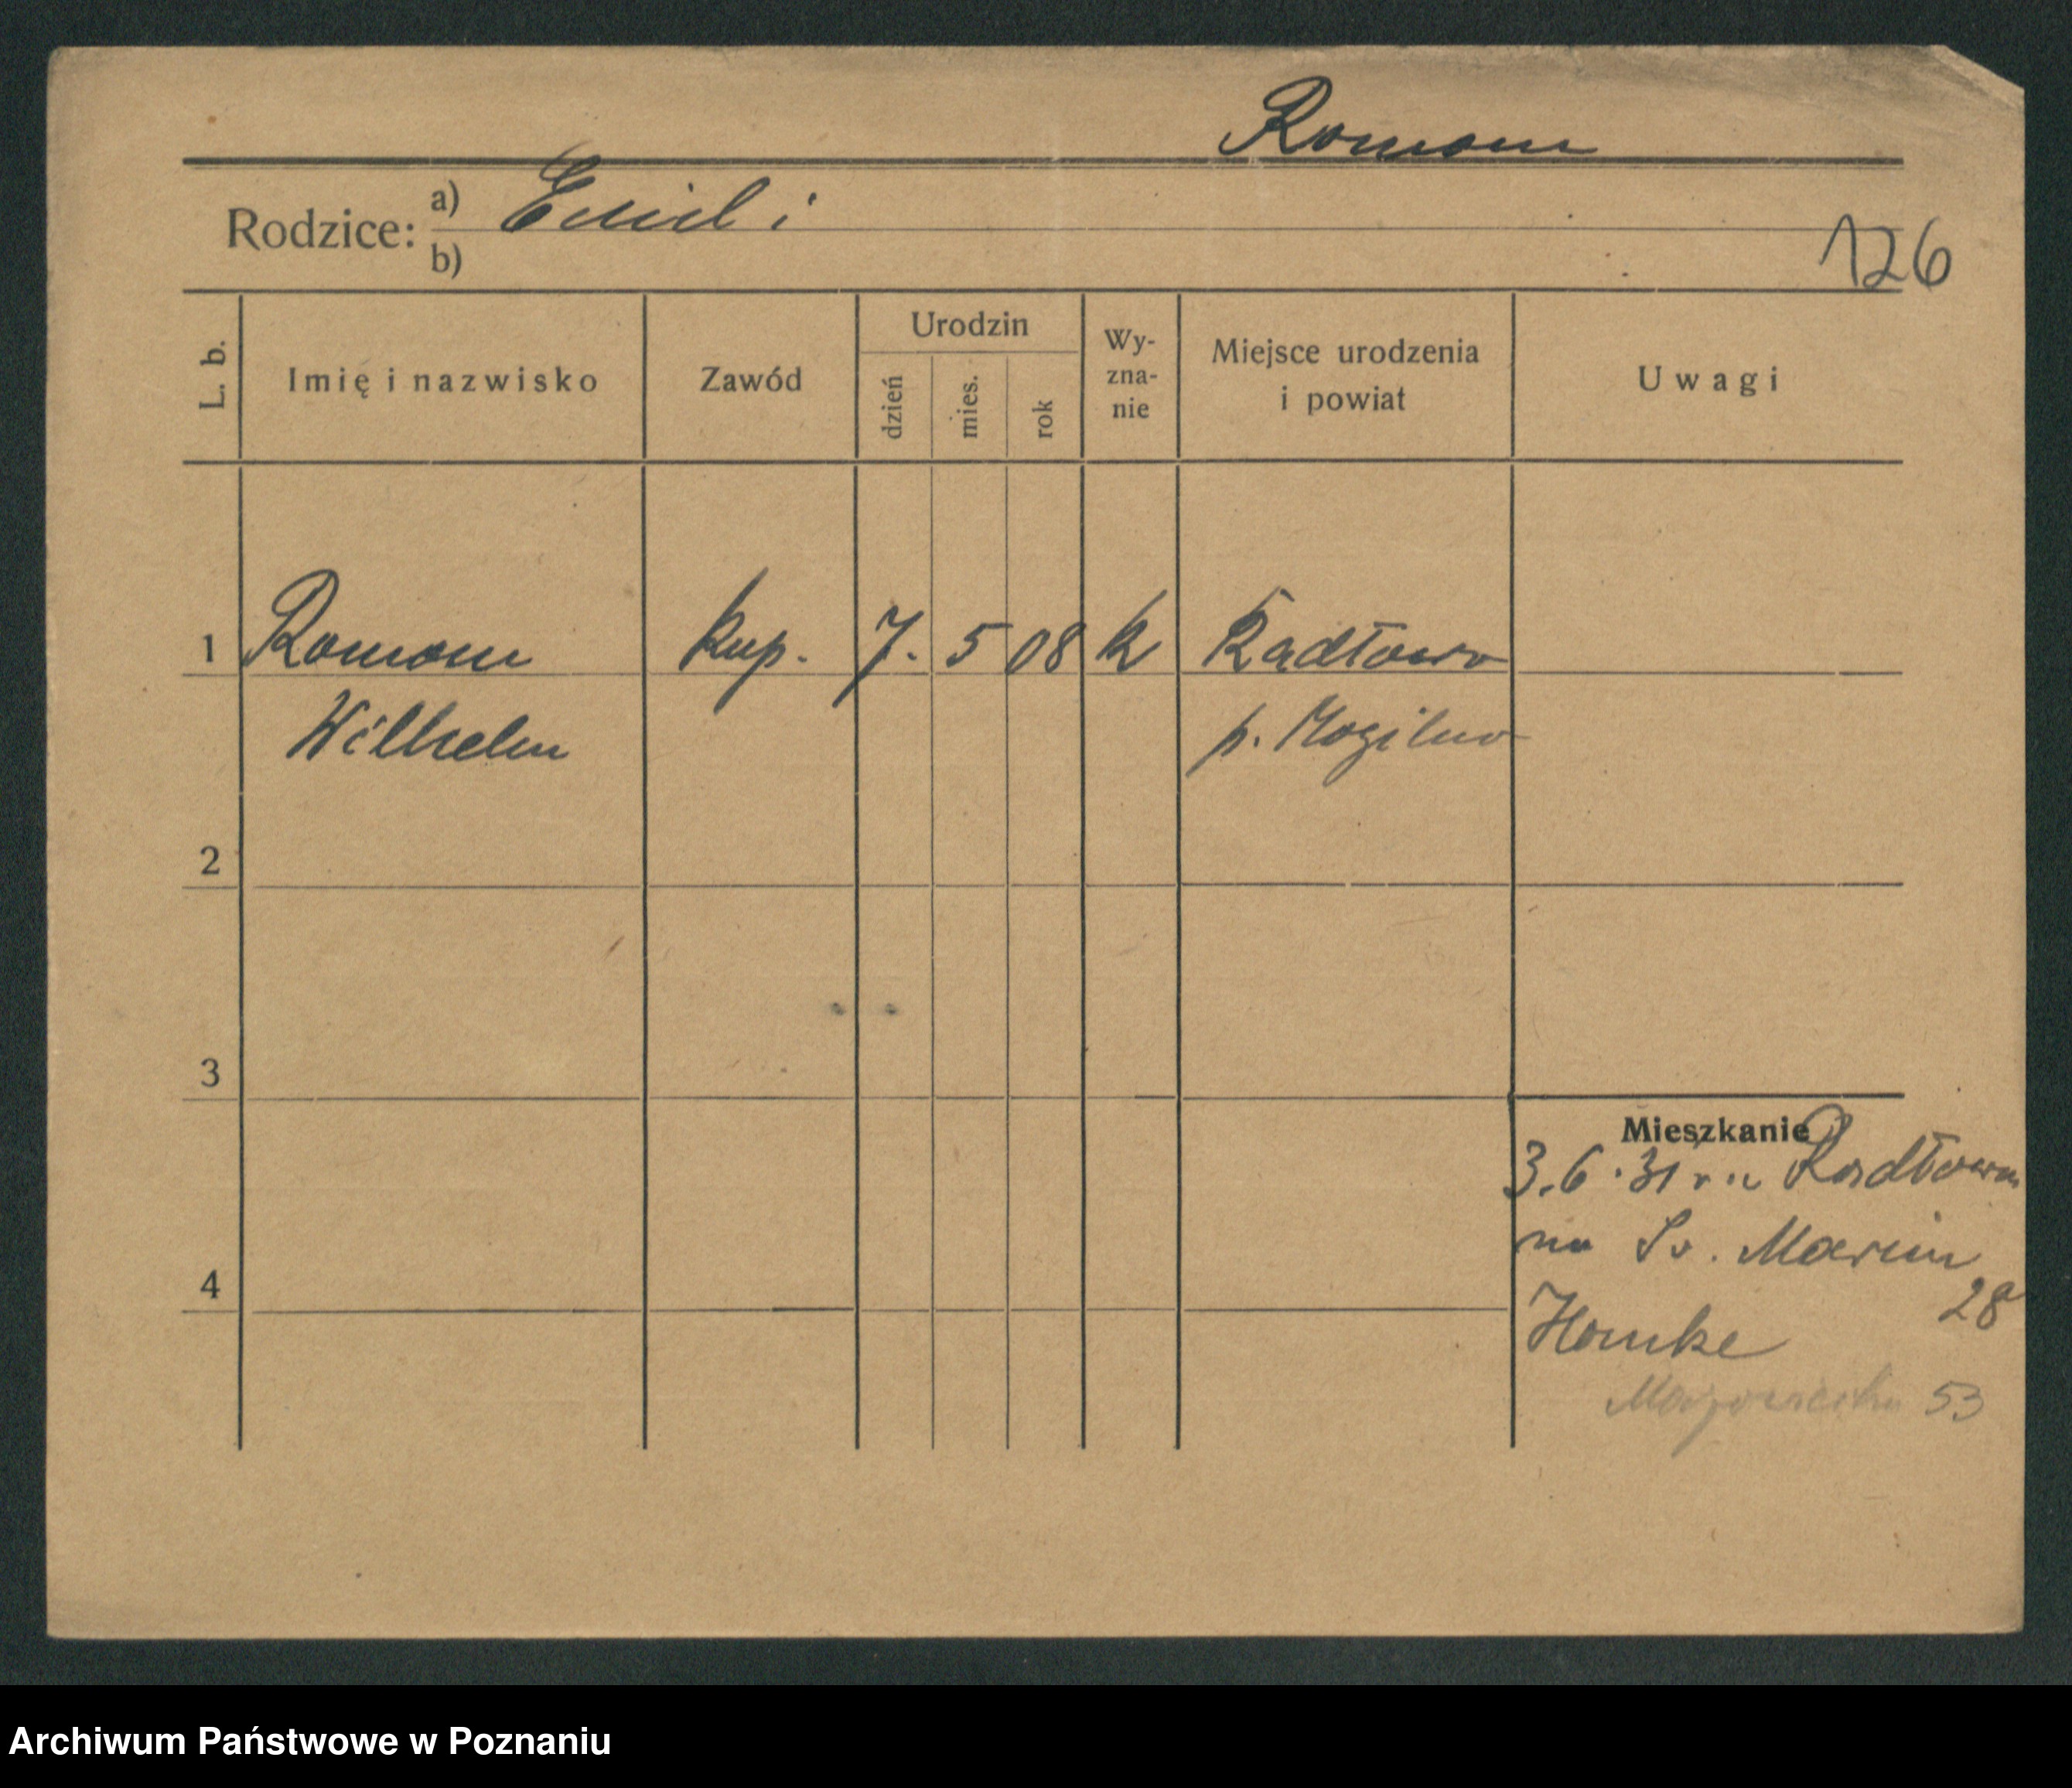 Romann
Rodzice: a) Emil i
b)
126
L. b. Imię i nazwisko Zawód Urodzin dzień mies. rok Wy-zna-nie Miejsce urodzenia i powiat Uwagi
1 Romann kup. 7. 5 08 k Radłowo
Wilhelm p. Mogilno
2
3
Mieszkanie
3.6.31 Radłowa
na Św. Marcin
4
28
Hanke
53
Archiwum Państwowe w Poznaniu